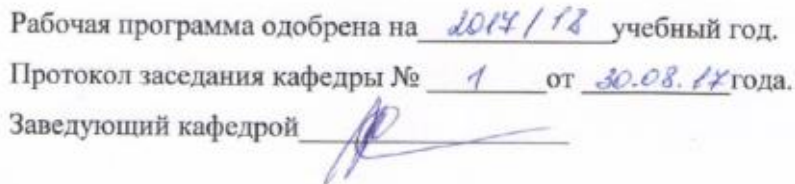 Рабочая программа одобрена на 2017/18 учебный год.
Протокол заседания кафедры № 1 от 30.08.17 года.
Заведующий кафедрой